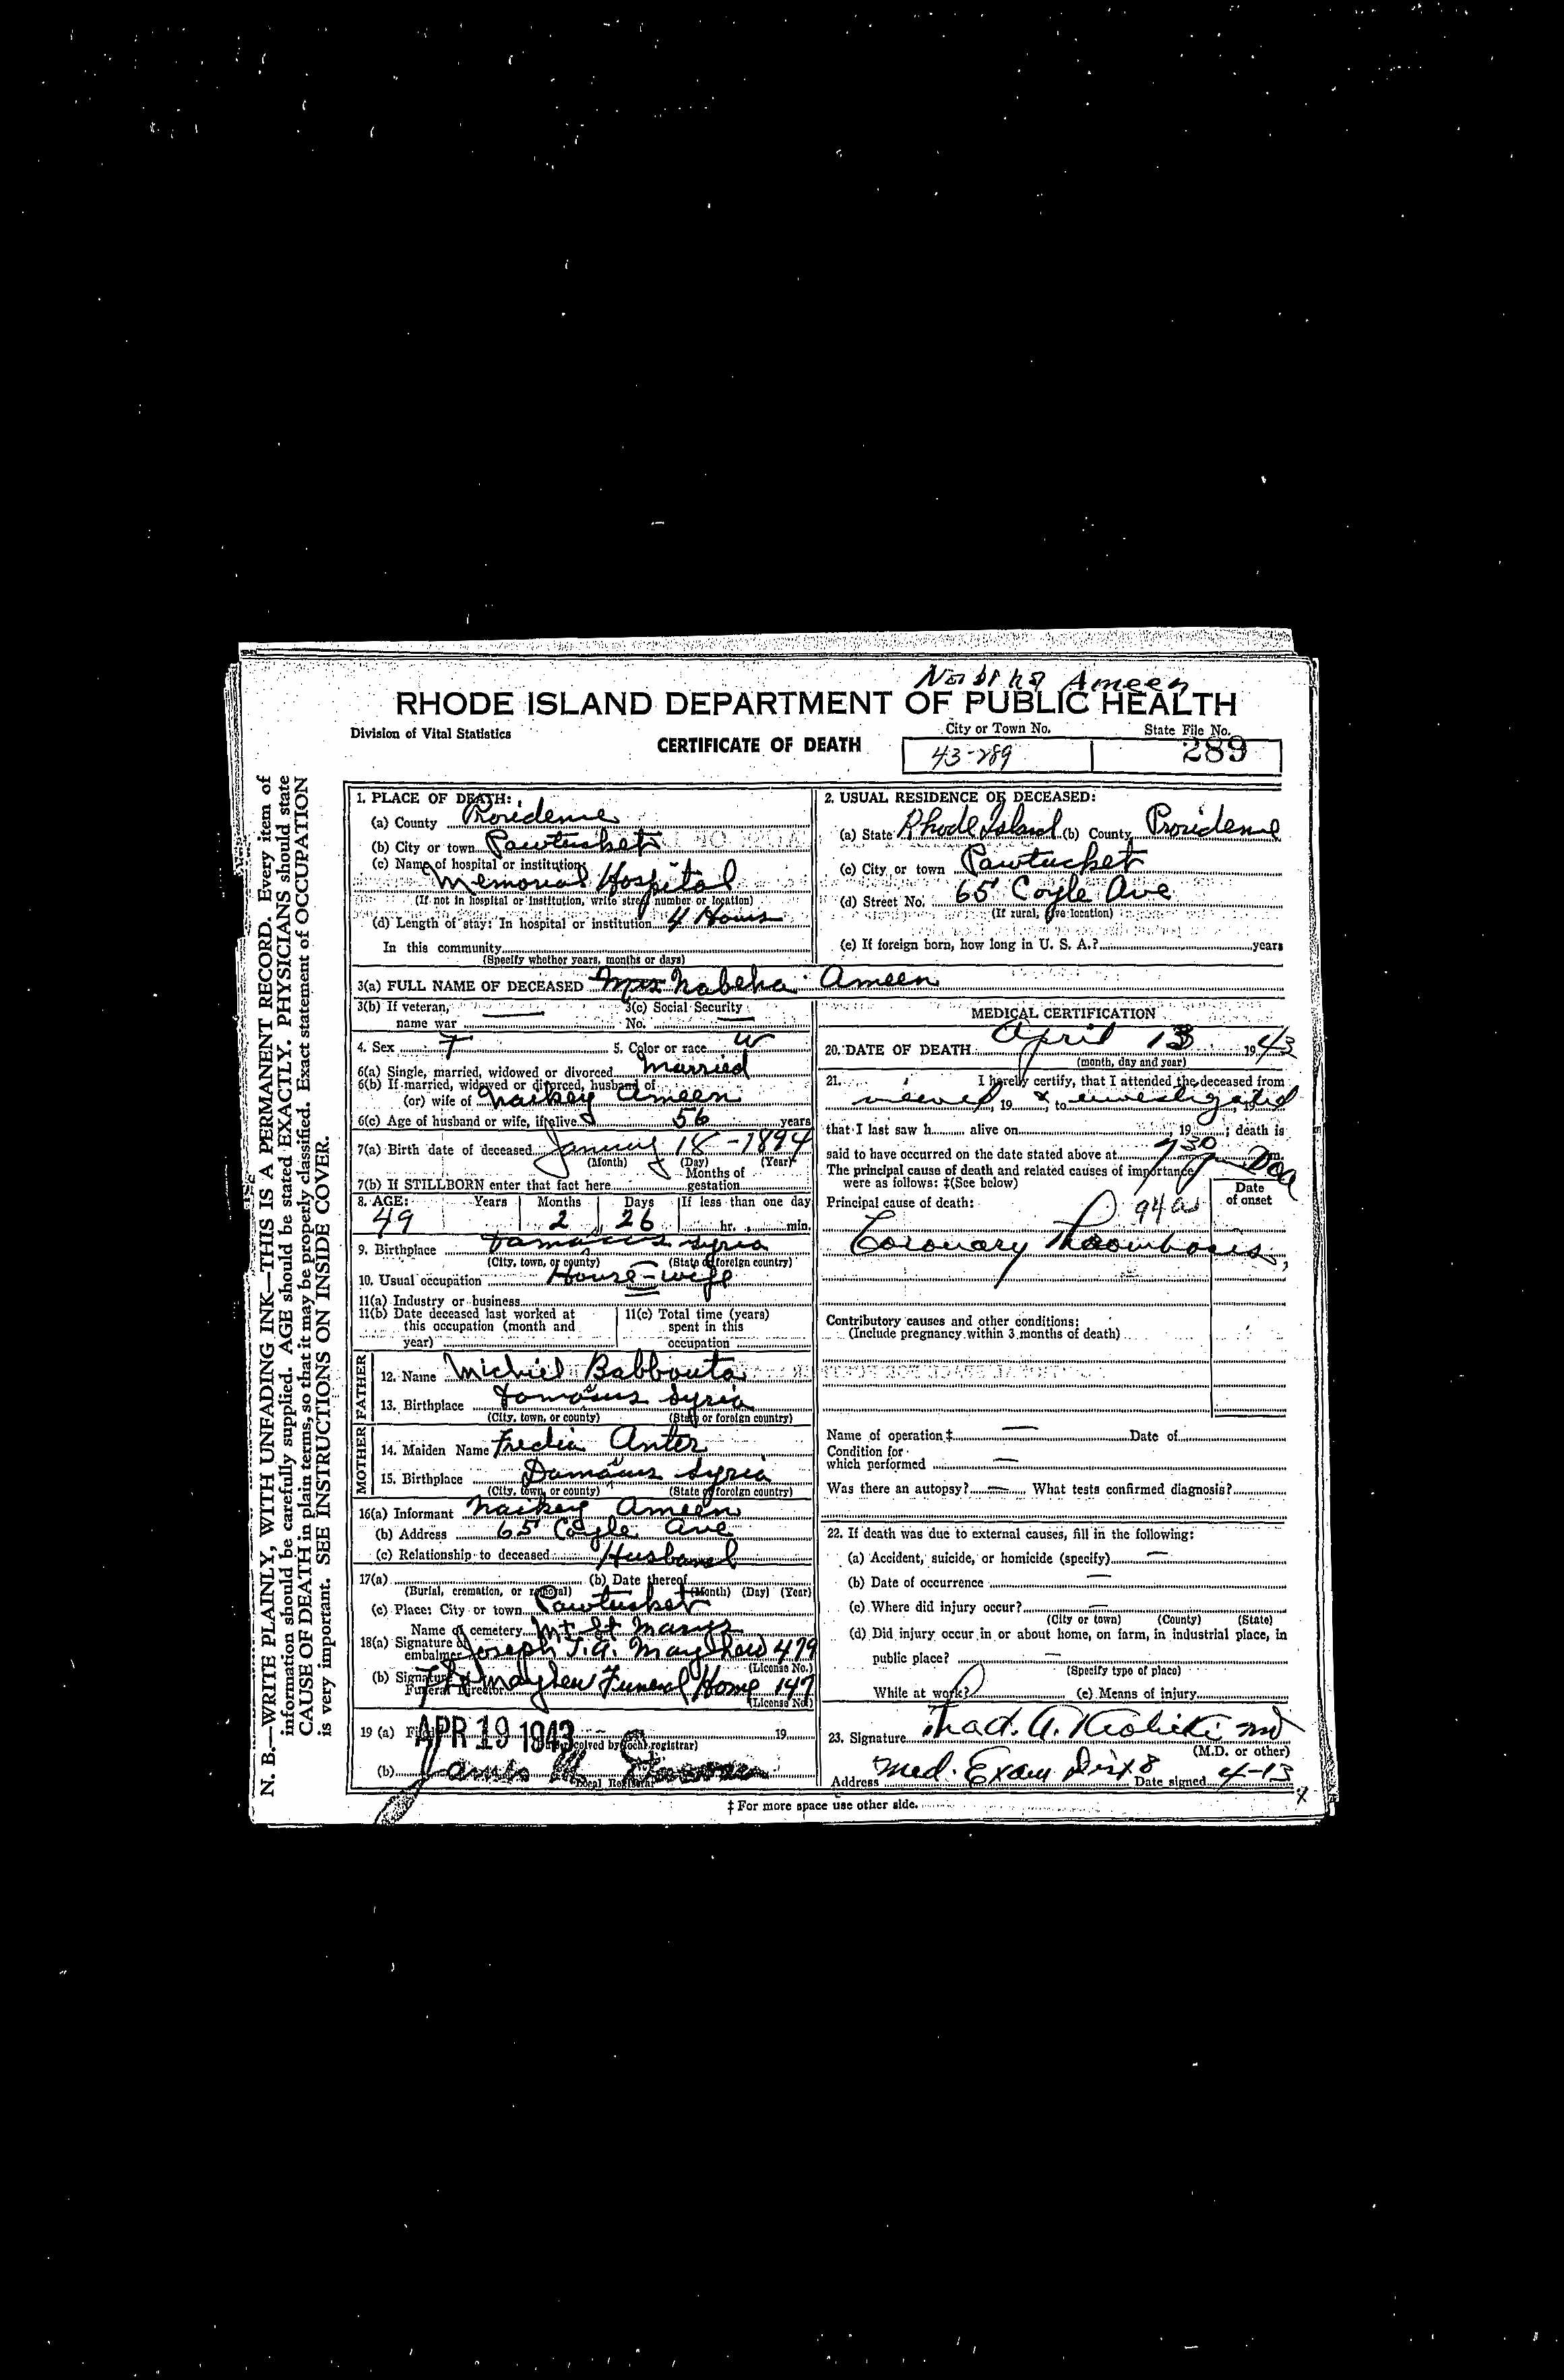 Ameen
RHODE ISLAND DEPARTMENT OF PUBLIC HEALTH
Division of Vital Statistics
CERTIFICATE OF DEATH
City or Town No. 43-289
State File No. 289
N. B.—WRITE PLAINLY, WITH UNFADING INK—THIS IS A PERMANENT RECORD. Every item of
information should be carefully supplied. AGE should be stated EXACTLY. PHYSICIANS should state
CAUSE OF DEATH in plain terms, so that it may be properly classified. Exact statement of OCCUPATION
is very important. SEE INSTRUCTIONS ON INSIDE COVER.
1. PLACE OF DEATH:
(a) County Providence
(b) City or town Pawtucket
(c) Name of hospital or institution:
Memorial Hospital
(If not in hospital or institution, write street number or location)
(d) Length of stay: In hospital or institution 4 Hours
In this community
(Specify whether years, months or days)
2. USUAL RESIDENCE OF DECEASED:
(a) State Rhode Island (b) County Providence
(c) City or town Pawtucket
(d) Street No. 65 Coyle Ave
(If rural, give location)
(e) If foreign born, how long in U. S. A.? years
3(a) FULL NAME OF DECEASED Mrs Nabeha Ameen
3(b) If veteran, name war
3(c) Social Security No.
4. Sex F 5. Color or race W
6(a) Single, married, widowed or divorced Married
6(b) If married, widowed or divorced, husband of
(or) wife of Naikey Ameen
6(c) Age of husband or wife, if alive 56 years
7(a) Birth date of deceased January 18 - 1894
(Month) (Day) (Year)
7(b) If STILLBORN enter that fact here Months of gestation
8. AGE: Years Months Days If less than one day
49 2 26 hr. min.
9. Birthplace Damascus Syria
(City, town, or county) (State or foreign country)
10. Usual occupation House-wife
11(a) Industry or business
11(b) Date deceased last worked at
this occupation (month and
year)
11(c) Total time (years)
spent in this
occupation
FATHER
12. Name Michiel Babbouta
13. Birthplace Damascus Syria
(City, town, or county) (State or foreign country)
MOTHER
14. Maiden Name Fredia Anter
15. Birthplace Damascus Syria
(City, town, or county) (State or foreign country)
16(a) Informant Naikey Ameen
(b) Address 65 Coyle Ave
(c) Relationship to deceased Husband
17(a) (b) Date thereof
(Burial, cremation, or removal) (Month) (Day) (Year)
(c) Place: City or town Pawtucket
Name of cemetery Mt St Marys
18(a) Signature of
embalmer Joseph T. A. Mayhew 479
(License No.)
(b) Signature
Funeral Director Mayhew Funeral Home 147
(License No.)
19 (a) Filed APR 19 1943 19
(Date received by local registrar)
(b) James
Local Registrar
MEDICAL CERTIFICATION
20. DATE OF DEATH April 13 1943
(month, day and year)
21. I hereby certify, that I attended the deceased from
viewed, 19 & to investigated, 19
that I last saw h alive on , 19 ; death is
said to have occurred on the date stated above at 7 30 m. DOA
The principal cause of death and related causes of importance
were as follows: ‡(See below)
Date
of onset
Principal cause of death: 94a
Coronary Thrombosis,
Contributory causes and other conditions:
(Include pregnancy within 3 months of death)
Name of operation ‡ — Date of
Condition for
which performed —
Was there an autopsy? — What tests confirmed diagnosis?
22. If death was due to external causes, fill in the following:
(a) Accident, suicide, or homicide (specify) —
(b) Date of occurrence —
(c) Where did injury occur? —
(City or town) (County) (State)
(d) Did injury occur in or about home, on farm, in industrial place, in
public place? —
(Specify type of place)
While at work? (e) Means of injury
23. Signature Thad. A. Krolicki MD
(M.D. or other)
Address Med. Exam Dist 8 Date signed 4-13
‡ For more space use other side.